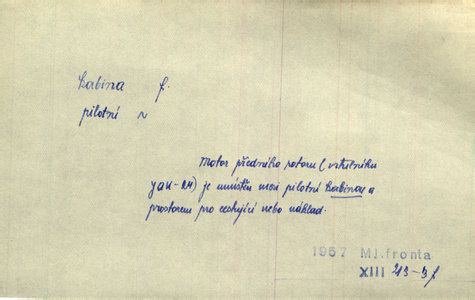 kabina f.
pilotní ~
Motor předního rotoru (vrtulníku
Jak-24) je umístěn mezi pilotní kabinou a
prostorem pro cestující nebo náklad.
1957 Ml.fronta
XIII 213-3f